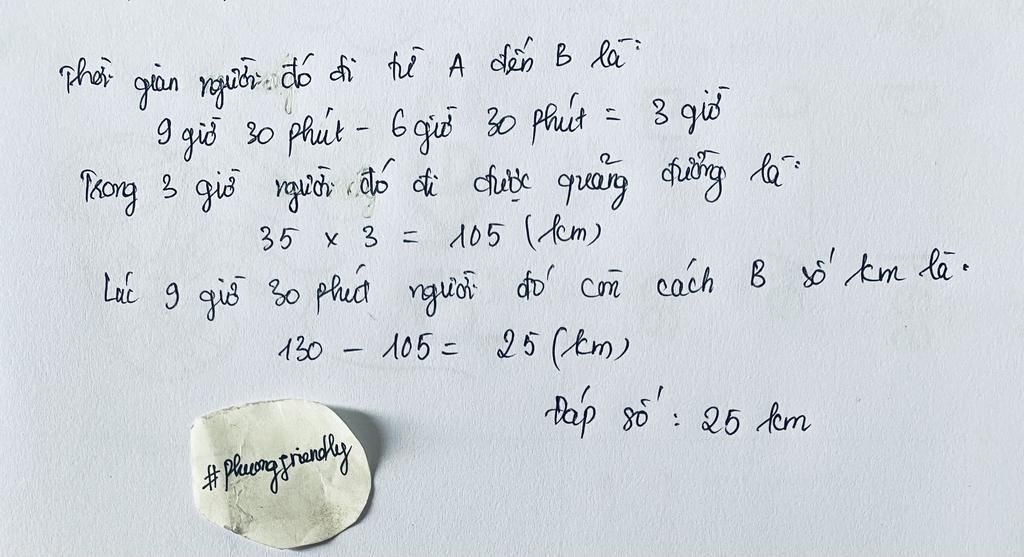 Thời gian người đó đi từ A đến B là:
9 giờ 30 phút - 6 giờ 30 phút = 3 giờ
Trong 3 giờ người đó đi được quảng đường là:
35 x 3 = 105 (km)
Lúc 9 giờ 30 phút người đó còn cách B số km là.
130 - 105 = 25 (km)
Đáp số : 25 km
#phuongfriendly